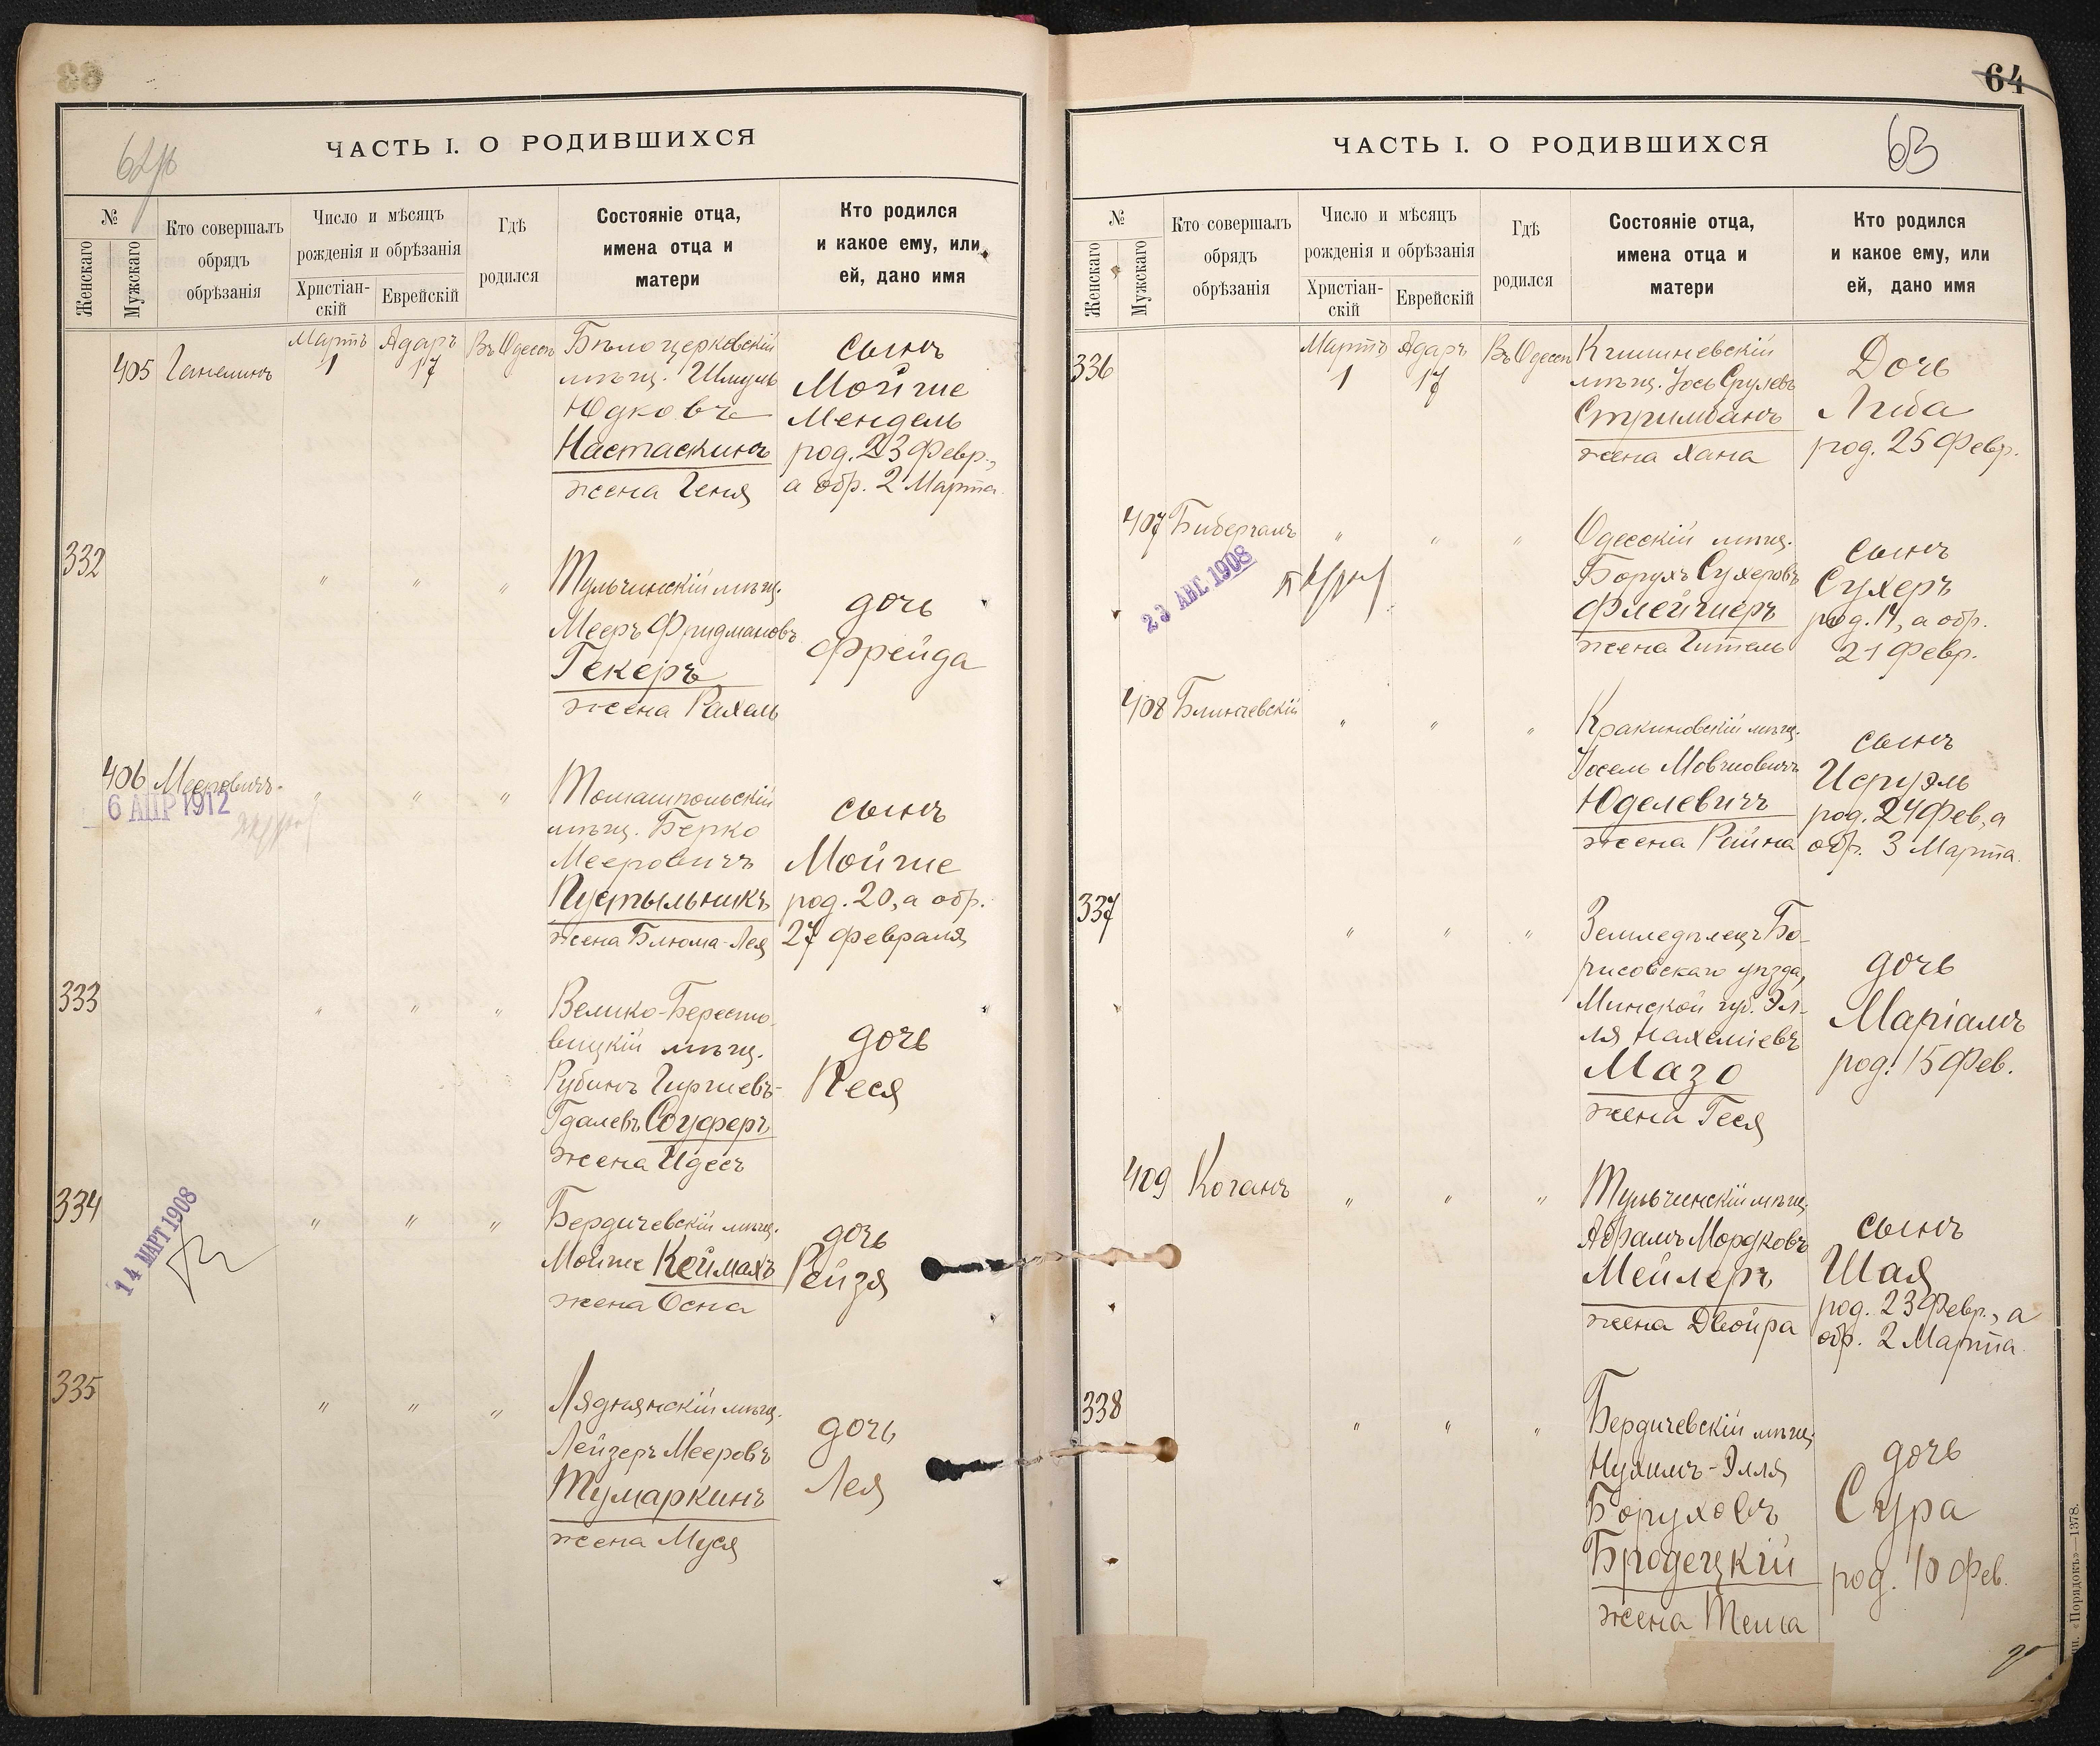 62об
ЧАСТЬ I. О РОДИВШИХСЯ
№
Женскаго
Мужскаго
Кто совершалъ
обрядъ
обрѣзанія
Число и мѣсяцъ
рожденія и обрѣзанія
Христіан-
скій
Еврейскій
Гдѣ
родился
Состояніе отца,
имена отца и
матери
Кто родился
и какое ему, или
ей, дано имя
405
Ганелинъ
Мартъ
1
Адаръ
17
Въ Одессѣ
Бѣлоцерковскій
мѣщ. Шмуль
Юдковъ
Настаскинъ
жена Геня
сынъ
Мойше
Мендель
род. 23 Февр.,
а обр. 2 Марта
332
" " "
Тульчинскій мѣщ.
Мееръ Фридмановъ
Гекеръ
жена Рахаль
дочь
Фрейда
406
Мееровичъ
6 АПР 1912
" " "
Томашпольскій
мѣщ. Берко
Мееровичъ
Пустыльникъ
жена Блюма-Лея
сынъ
Мойше
род. 20, а обр.
27 Февраля
333
" " "
Велико-Бересто-
вицкій мѣщ.
Рубинъ Гиршевъ-
Гдалевъ Соуферъ
жена Идесъ
дочь
Песя
334
14 МАРТ 1908
" " "
Бердичевскій мѣщ.
Мойше Кеймахъ
жена Осна
дочь
Рейзя
335
" " "
Ляднянскій мѣщ.
Лейзеръ Мееровъ
Тумаркинъ
жена Муся
дочь
Лея
64
63
ЧАСТЬ I. О РОДИВШИХСЯ
№
Женскаго
Мужскаго
Кто совершалъ
обрядъ
обрѣзанія
Число и мѣсяцъ
рожденія и обрѣзанія
Христіан-
скій
Еврейскій
Гдѣ
родился
Состояніе отца,
имена отца и
матери
Кто родился
и какое ему, или
ей, дано имя
336
Мартъ
1
Адаръ
17
Въ Одессѣ
Кишиневскій
мѣщ. Іось Срулевъ
Стримбанъ
жена Хана
Дочь
Либа
род. 25 Февр.
407
Бибергалъ
23 АВГ. 1908
" " "
Одесскій мѣщ.
Борухъ Сухеровъ
Флейшеръ
жена Гитель
сынъ
Сухеръ
род. 14, а обр.
21 Февр.
408
Блинчевскій
" " "
Кракиновскій мѣщ.
Іосель Мовшовичъ
Юделевичъ
жена Райна
сынъ
Исруэль
род. 24 Фев., а
обр. 3 Марта
337
" " "
Земледѣлецъ Бо-
рисовскаго уѣзда,
Минской губ. Эл-
ля Нахеміевъ
Мазо
жена Геся
дочь
Маріамъ
род. 15 Фев.
409
Коганъ
" " "
Тульчинскій мѣщ.
Абрамъ Мордковъ
Мейлеръ
жена Двойра
сынъ
Шая
род. 23 Февр., а
обр. 2 Марта
338
" " "
Бердичевскій мѣщ.
Нухимъ-Элля
Боруховъ
Бродецкій
жена Тема
дочь
Сура
род. 10 Фев.
«Порядокъ»—1378.